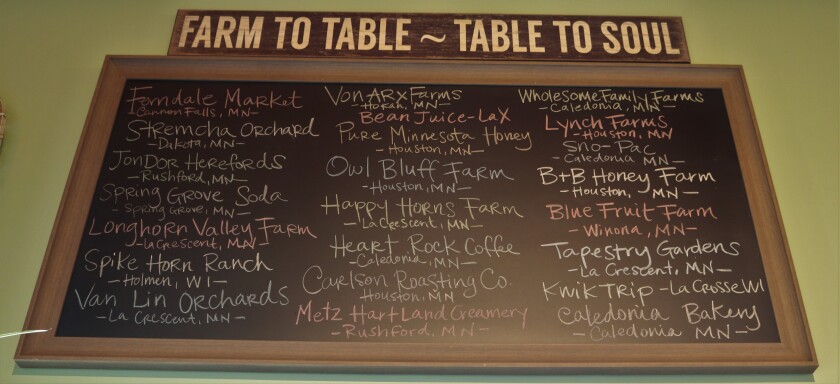 FARM TO TABLE ~ TABLE TO SOUL
Ferndale Market
-Cannon Falls, MN-
Stremcha Orchard
-Dakota, MN-
JonDor Herefords
-Rushford, MN-
Spring Grove Soda
-Spring Grove, MN-
Longhorn Valley Farm
-LaCrescent, MN-
Spike Horn Ranch
-Holmen, WI-
Van Lin Orchards
-La Crescent, MN-
Von Arx Farms
-Hokah, MN-
Bean Juice-LaX
Pure Minnesota Honey
-Houston, MN-
Owl Bluff Farm
-Houston, MN-
Happy Horns Farm
-La Crescent, MN-
Heart Rock Coffee
-Caledonia, MN-
Carlson Roasting Co.
Houston, MN
Metz Hart Land Creamery
-Rushford, MN-
Wholesome Family Farms
-Caledonia, MN-
Lynch Farms
-Houston, MN
Sno-Pac
-Caledonia MN-
B+B Honey Farm
-Houston, MN-
Blue Fruit Farm
-Winona, MN-
Tapestry Gardens
-La Crescent, MN-
Kwik Trip -La Crosse WI
Caledonia Bakery
-Caledonia MN-